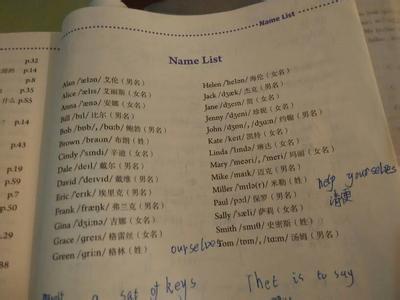 Name List
Name List
Alan /'ælən/ 艾伦（男名）
Alice /'ælɪs/ 艾丽斯（女名）
Anna /'ænə/ 安娜（女名）
Bill /bɪl/ 比尔（男名）
Bob /bɒb/, /bɑ:b/ 鲍勃（男名）
Brown /braʊn/ 布朗（姓）
Cindy /'sɪndi/ 辛迪（女名）
Dale /deɪl/ 戴尔（男名）
David /'deɪvɪd/ 戴维（男名）
Eric /'erɪk/ 埃里克（男名）
Frank /fræŋk/ 弗兰克（男名）
Gina /'dʒi:nə/ 吉娜（女名）
Grace /greɪs/ 格雷丝（女名）
Green /gri:n/ 格林（姓）
Helen /'helən/ 海伦（女名）
Jack /dʒæk/ 杰克（男名）
Jane /dʒeɪn/ 简（女名）
Jenny /'dʒeni/ 珍妮（女名）
John /dʒɒn/, /dʒɑ:n/ 约翰（男名）
Kate /keɪt/ 凯特（女名）
Linda /'lɪndə/ 琳达（女名）
Mary /'meəri/, /'meri/ 玛丽（女名）
Mike /maɪk/ 迈克（男名）
Miller /'mɪlə(r)/ 米勒（姓）
Paul /pɔ:l/ 保罗（男名）
Sally /'sæli/ 萨莉（女名）
Smith /smɪθ/ 史密斯（姓）
Tom /tɒm/, /tɑ:m/ 汤姆（男名）
help yourselves
ourselves
set of keys
That is to say
p.32
p.14
p.8
p.35
p.8
p.14
p.55
p.59
p.7
p.50
p.29